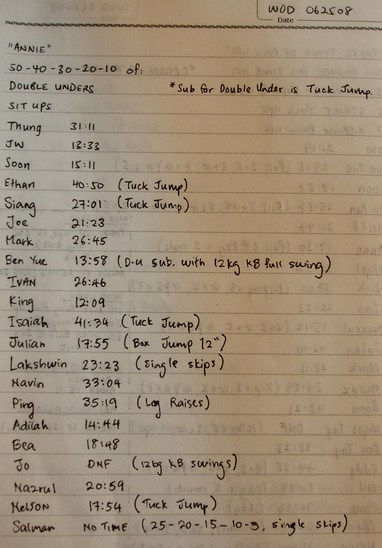 WOD 062508
Date
"ANNIE"
50-40-30-20-10 of:
DOUBLE UNDERS *Sub for Double Under is Tuck Jump.
SIT UPS
Thung 31:11
JW 18:33
Soon 15:11
Ethan 40:50 (Tuck Jump)
Siang 27:01 (Tuck Jump)
Joe 21:23
Mark 26:45
Ben Yue 13:58 (D-U sub. with 12kg KB full swing)
IVAN 26:46
King 12:09
Isaiah 41:34 (Tuck Jump)
Julian 17:55 (Box Jump 12")
Lakshwin 23:23 (single skips)
Navin 33:04
Ping 35:19 (Leg Raises)
Adilah 14:44
Bea 18:48
Jo DNF (12kg KB swings)
Nazrul 20:59
Nelson 17:54 (Tuck Jump)
Salman NO TIME (25-20-15-10-5, single skips)